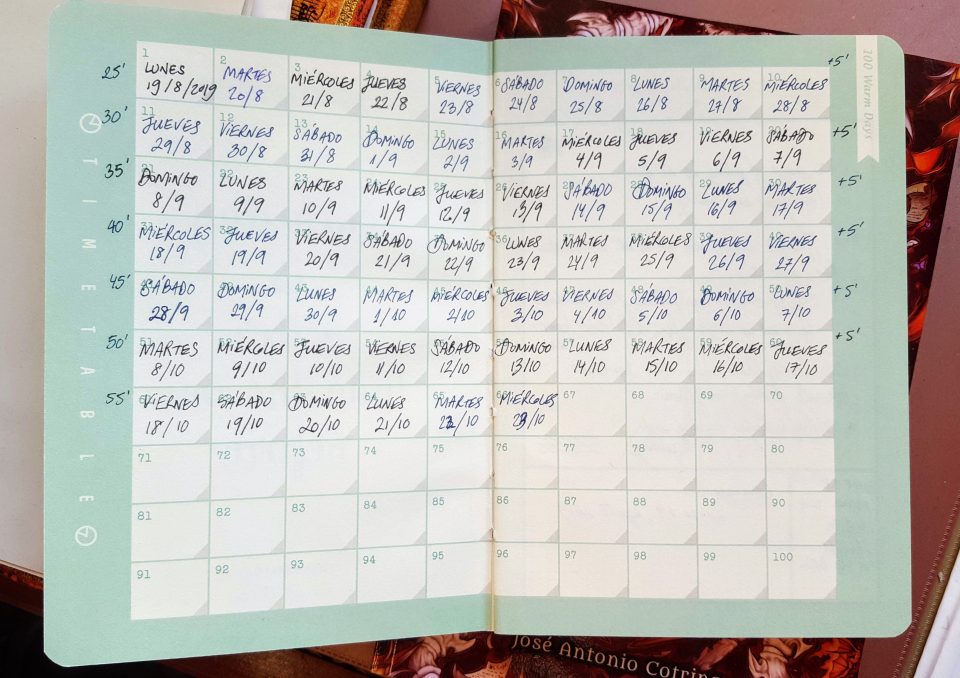 100 Warm Days
TIMETABLE
1 2 3 4 5 6 7 8 9 10
25' LUNES MARTES MIÉRCOLES JUEVES VIERNES SÁBADO DOMINGO LUNES MARTES MIÉRCOLES +5'
19/8/2019 20/8 21/8 22/8 23/8 24/8 25/8 26/8 27/8 28/8
11 12 13 14 15 16 17 18 19 20
30' JUEVES VIERNES SÁBADO DOMINGO LUNES MARTES MIÉRCOLES JUEVES VIERNES SÁBADO +5'
29/8 30/8 31/8 1/9 2/9 3/9 4/9 5/9 6/9 7/9
21 22 23 24 25 26 27 28 29 30
35' DOMINGO LUNES MARTES MIÉRCOLES JUEVES VIERNES SÁBADO DOMINGO LUNES MARTES +5'
8/9 9/9 10/9 11/9 12/9 13/9 14/9 15/9 16/9 17/9
31 32 33 34 35 36 37 38 39 40
40' MIÉRCOLES JUEVES VIERNES SÁBADO DOMINGO LUNES MARTES MIÉRCOLES JUEVES VIERNES +5'
18/9 19/9 20/9 21/9 22/9 23/9 24/9 25/9 26/9 27/9
41 42 43 44 45 46 47 48 49 50
45' SÁBADO DOMINGO LUNES MARTES MIÉRCOLES JUEVES VIERNES SÁBADO DOMINGO LUNES +5'
28/9 29/9 30/9 1/10 2/10 3/10 4/10 5/10 6/10 7/10
51 52 53 54 55 56 57 58 59 60
50' MARTES MIÉRCOLES JUEVES VIERNES SÁBADO DOMINGO LUNES MARTES MIÉRCOLES JUEVES +5'
8/10 9/10 10/10 11/10 12/10 13/10 14/10 15/10 16/10 17/10
61 62 63 64 65 66 67 68 69 70
55' VIERNES SÁBADO DOMINGO LUNES MARTES MIÉRCOLES
18/10 19/10 20/10 21/10 22/10 23/10
71 72 73 74 75 76 77 78 79 80
81 82 83 84 85 86 87 88 89 90
91 92 93 94 95 96 97 98 99 100
José Antonio